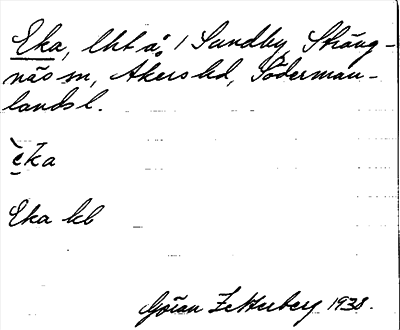 Eka, lht å, i Sundby, Sträng-
näs sn, Åkers hd, Söderman-
lands l.
ēka
Eka kb
Göran Zetterberg 1938.